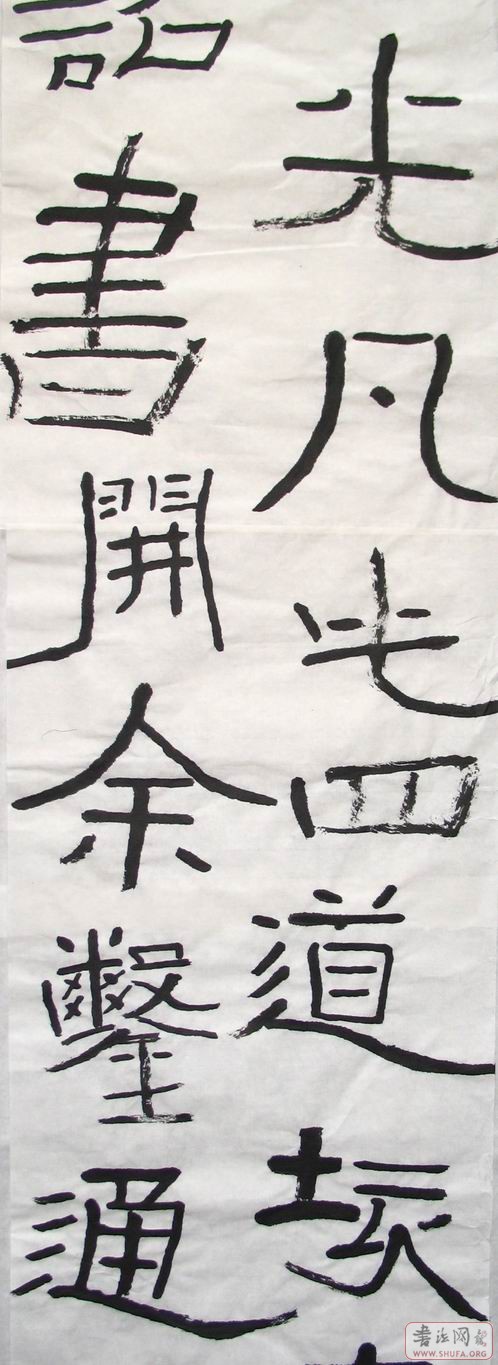 光凡此四道垓
詔書開余鑿通
書法网
WWW.SHUFA.ORG